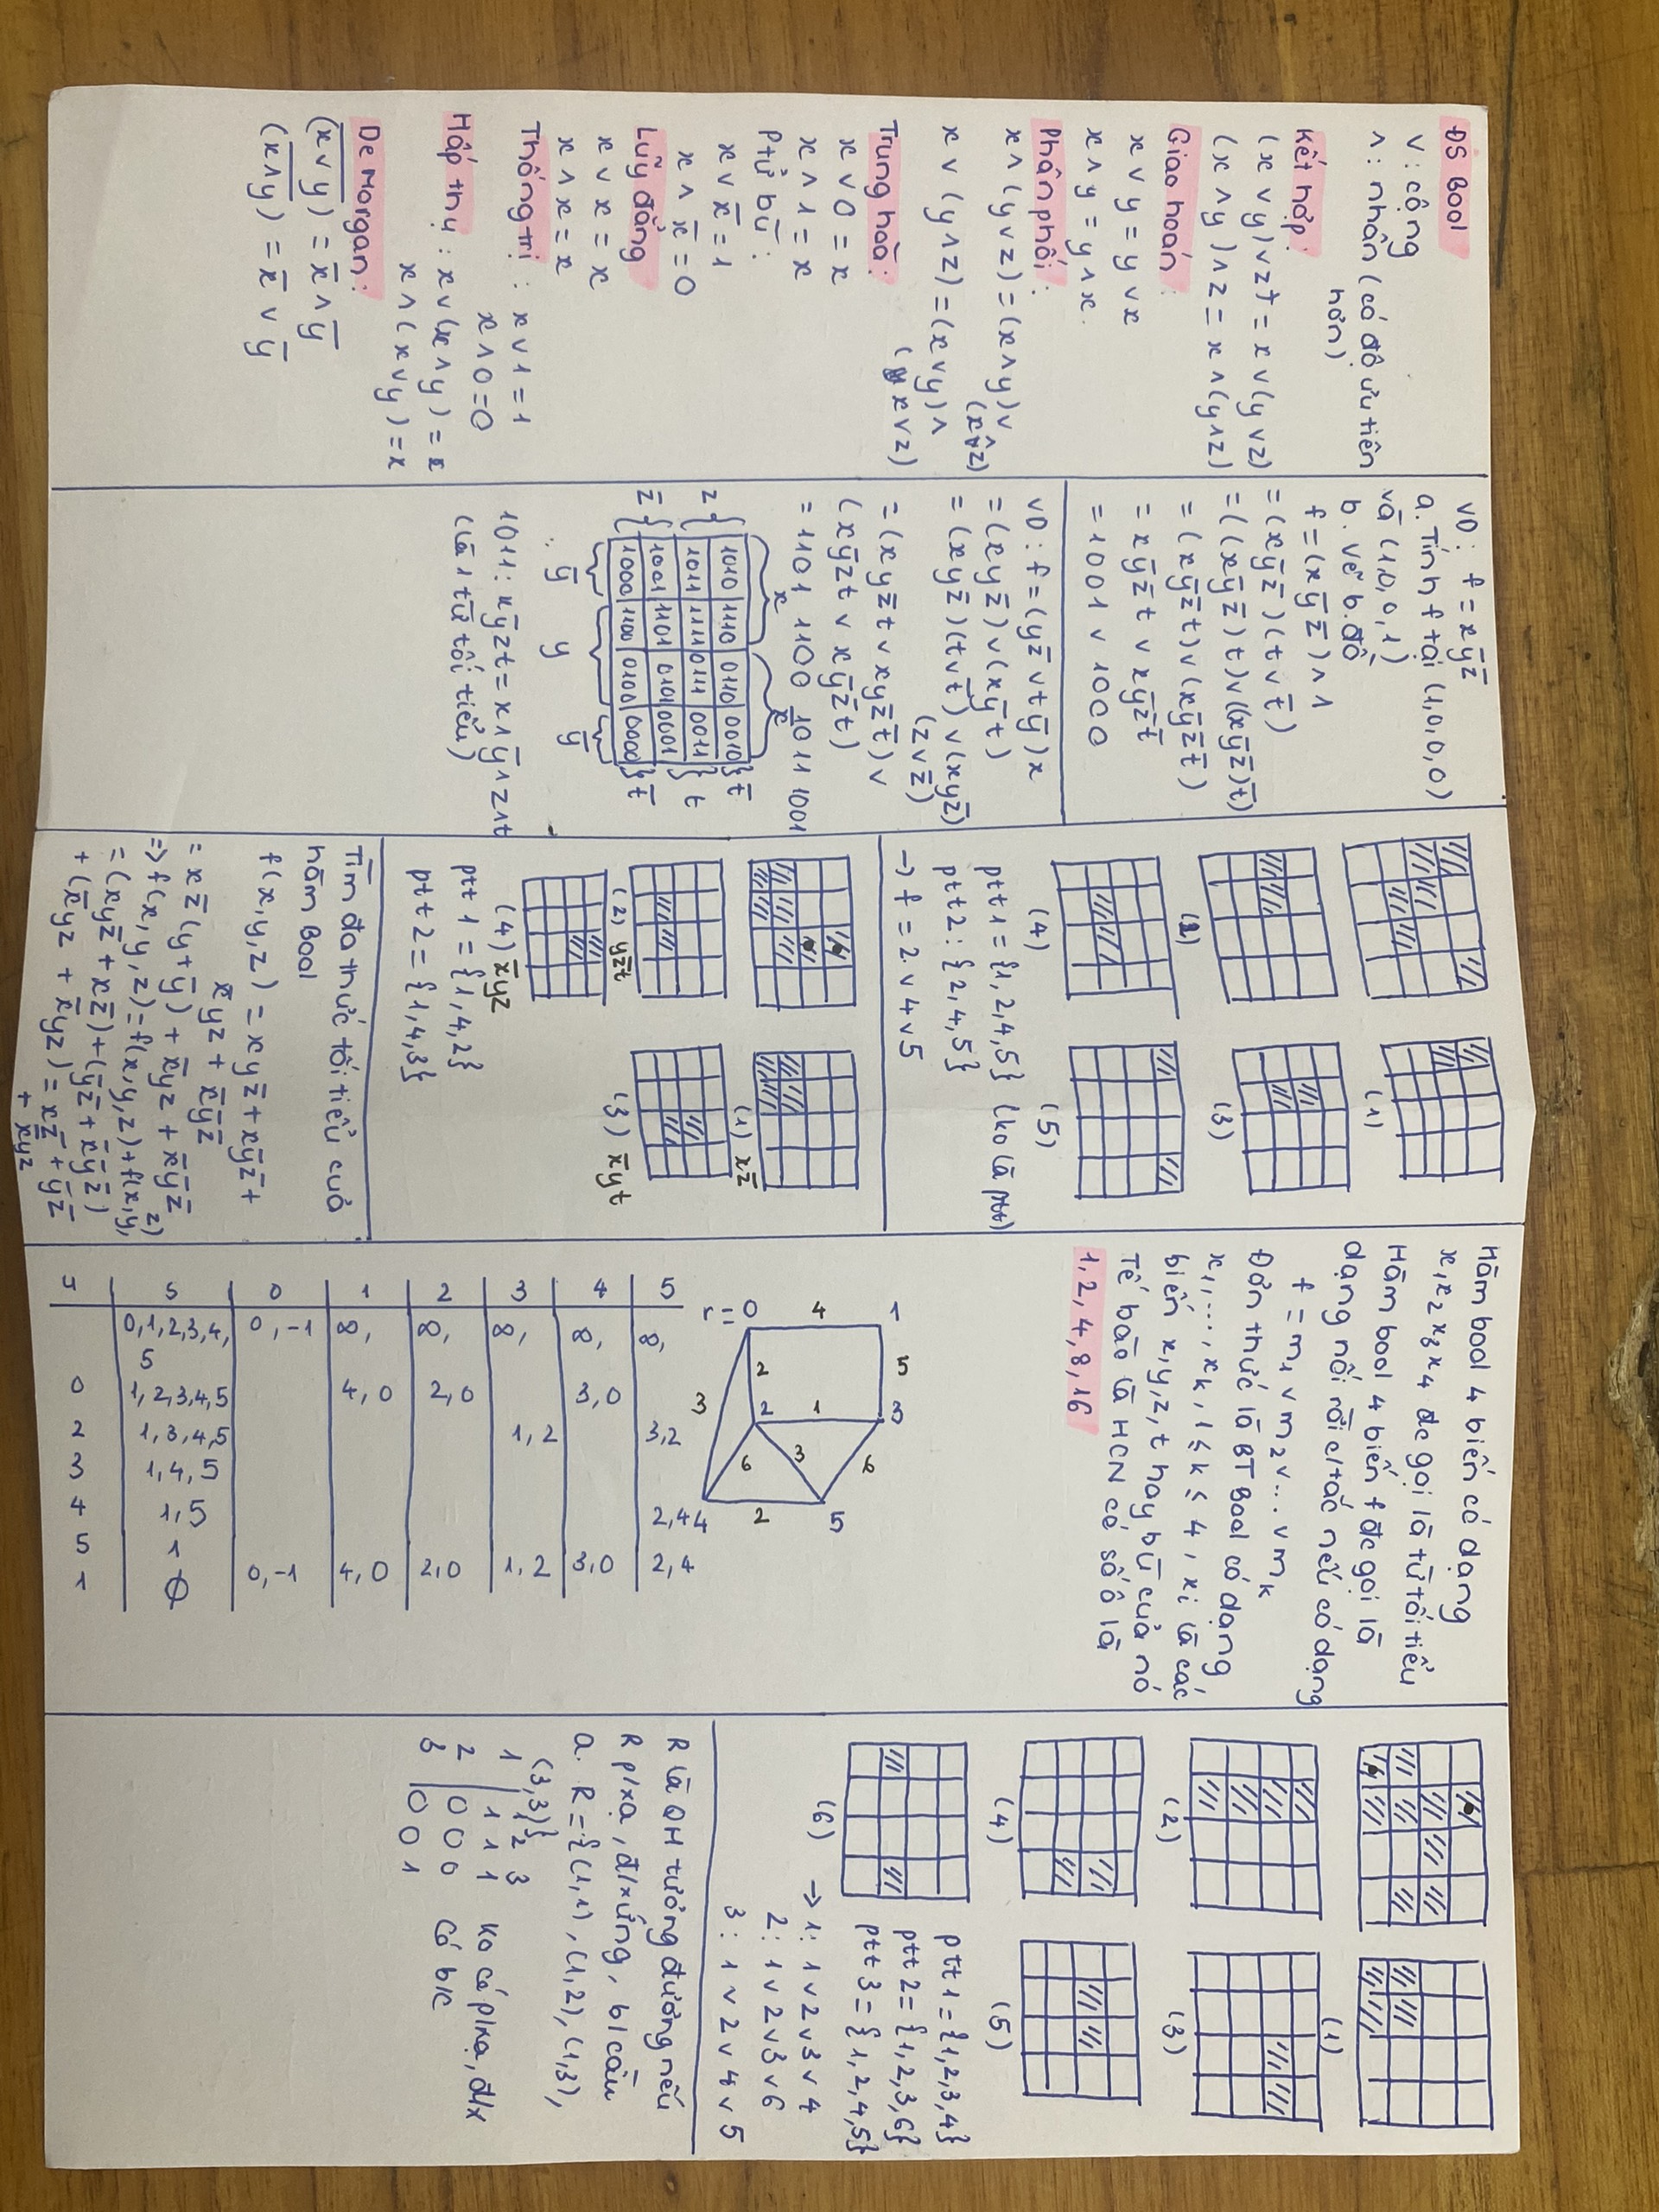 ĐS Bool
V: cộng
Λ: nhân (có độ ưu tiên
hơn)
Kết hợp:
(x ∨ y) ∨ z = x ∨ (y ∨ z)
(x ∧ y) ∧ z = x ∧ (y ∧ z)
Giao hoán:
x ∨ y = y ∨ x
x ∧ y = y ∧ x.
Phân phối:
x ∧ (y ∨ z) = (x ∧ y) ∨
(x ∧ z)
x ∨ (y ∧ z) = (x ∨ y) ∧
(x ∨ z)
Trung hoà:
x ∨ 0 = x
x ∧ 1 = x
Ptử bù:
x ∨ x̄ = 1
x ∧ x̄ = 0
Luỹ đẳng
x ∨ x = x
x ∧ x = x
Thống trị: x ∨ 1 = 1
x ∧ 0 = 0
Hấp thụ: x ∨ (x ∧ y) = x
x ∧ (x ∨ y) = x
De Morgan:
(x̅ ∨̅ y̅) = x̄ ∧ ȳ
(x̅ ∧̅ y̅) = x̄ ∨ ȳ
VD: f = x ȳ z̄
a. Tính f tại (1,0,0,0)
và (1,0,0,1)
b. Vẽ b.đồ
f = (x ȳ z̄) ∧ 1
= (x ȳ z̄)(t ∨ t̄)
= ((x ȳ z̄) t) ∨ ((x ȳ z̄) t̄)
= (x ȳ z̄ t) ∨ (x ȳ z̄ t̄)
= x ȳ z̄ t ∨ x ȳ z̄ t̄
= 1001 ∨ 1000
VD: f = (y z̄ ∨ t ȳ) x
= (x y z̄) ∨ (x ȳ t)
= (x y z̄)(t ∨ t̄) ∨ (x y z̄)
(z ∨ z̄)
= (x y z̄ t ∨ x y z̄ t̄) ∨
(x ȳ z t ∨ x ȳ z̄ t)
= 1101 1100 1011 1001
x x̄
z 1010 1110 0110 0010 t̄
1011 1111 0111 0011 t
z̄ 1001 1101 0101 0001
1000 1100 0100 0000 t̄
ȳ y ȳ
1011: x ȳ z t = x ∧ ȳ ∧ z ∧ t
(là 1 từ tối tiểu)
(1)
(2) (3)
(4) (5)
ptt 1 = {1, 2, 4, 5} (ko là ptt)
ptt 2: {2, 4, 5}
→ f = 2 ∨ 4 ∨ 5
(1) x z̄
(2) y z̄ t (3) x̄ y t
(4) x̄ y z
ptt 1 = {1, 4, 2}
ptt 2 = {1, 4, 3}
Tìm đa thức tối tiểu của
hàm Bool
f(x, y, z) = x y z̄ + x ȳ z̄ +
x̄ y z + x̄ ȳ z̄
= x z̄ (y + ȳ) + x̄ y z + x̄ ȳ z̄
=> f(x, y, z) = f(x, y, z) + f(x, y, z)
= (x y z̄ + x z̄) + (ȳ z̄ + x̄ ȳ z̄)
+ (x̄ y z + x̄ y z) = x z̄ + ȳ z̄
+ x̄ y z
Hàm bool 4 biến có dạng
x₁ x₂ x₃ x₄ đc gọi là từ tối tiểu
Hàm bool 4 biến f đc gọi là
dạng nối rời c/tắc nếu có dạng
f = m₁ ∨ m₂ ∨ ... ∨ mₖ
Đơn thức là BT Bool có dạng
x₁, ..., xₖ, 1 ≤ k ≤ 4, xᵢ là các
biến x, y, z, t hay bù của nó
Tế bào là HCN có số ô là
1, 2, 4, 8, 16
1 5 3 6 5
4 1 3 2
r = 0 2 2 6 4
3
u S 0 1 2 3 4 5
0, 1, 2, 3, 4, 5 0, -1 ∞, ∞, ∞, ∞, ∞,
0 1, 2, 3, 4, 5 4, 0 2, 0 3, 0
2 1, 3, 4, 5 1, 2 3, 2
3 1, 4, 5
4 1, 5 2, 4
5 1
1 ∅ 0, -1 4, 0 2, 0 1, 2 3, 0 2, 4
(1)
(2) (3)
(4) (5)
(6)
ptt 1 = {1, 2, 3, 4}
ptt 2 = {1, 2, 3, 6}
ptt 3 = {1, 2, 4, 5}
→ 1: 1 ∨ 2 ∨ 3 ∨ 4
2: 1 ∨ 2 ∨ 3 ∨ 6
3: 1 ∨ 2 ∨ 4 ∨ 5
R là QH tương đương nếu
R p/xạ, đ/xứng, b/cầu
a. R = {(1,1), (1,2), (1,3),
(3,3)}
1 2 3
1 1 1 1 Ko có p/xạ, đ/x
2 0 0 0 có b/c
3 0 0 1